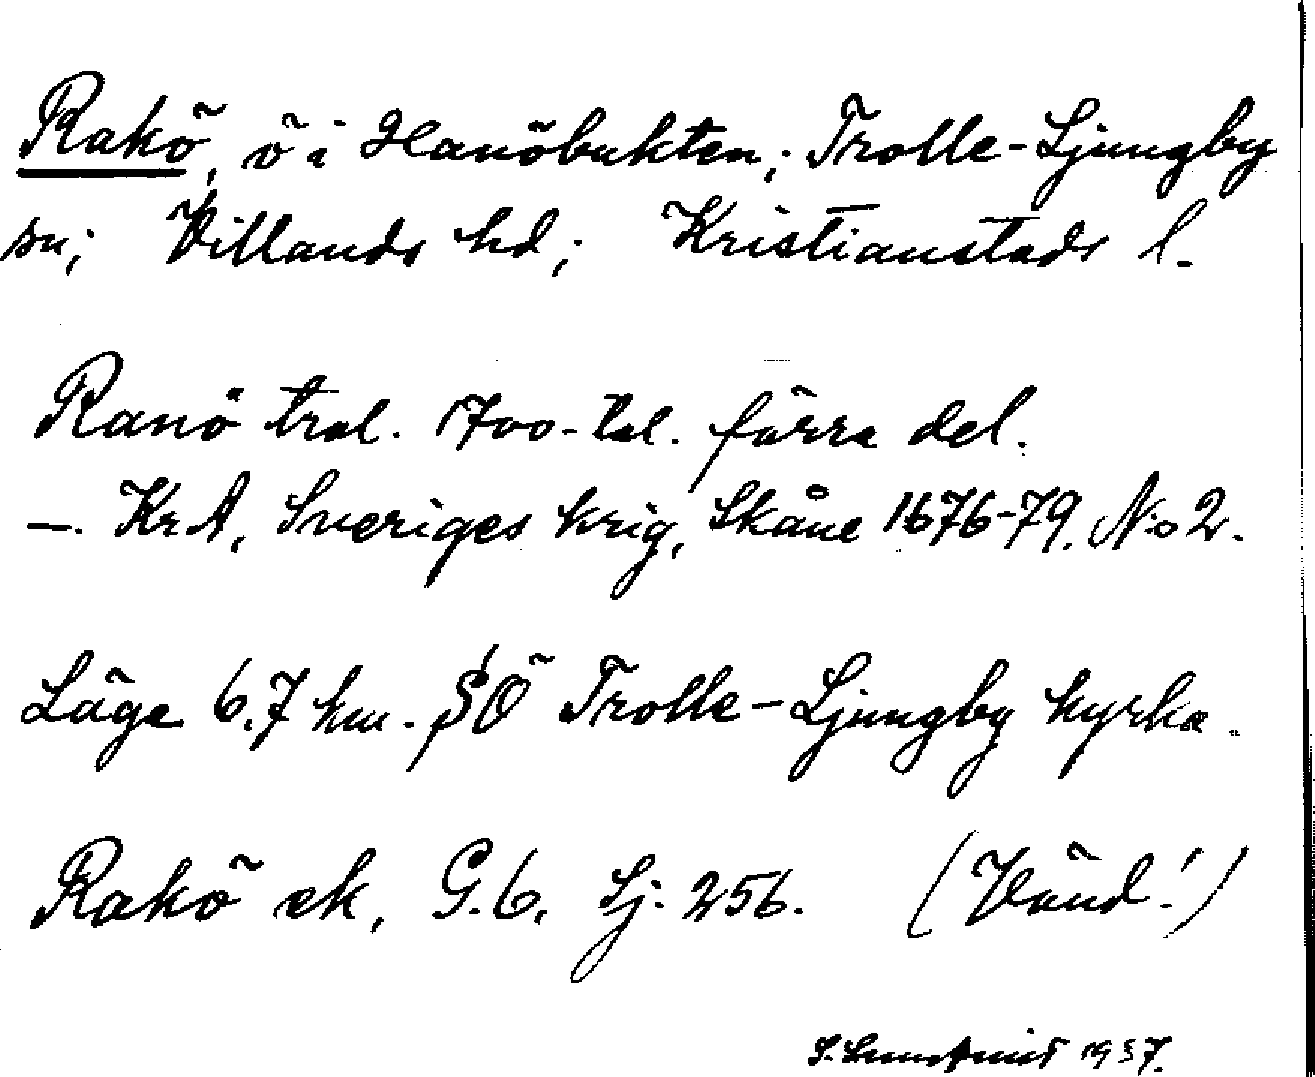 Rakö, ö i Hanöbukten; Trolle-Ljungby
sn; Villands hd; Kristianstads l.
Ranö tral. 1700-tal. förra del.
—. KrA, Sveriges krig, Skåne 1676-79. N:o 2.
Läge 6.7 km. SÖ Trolle-Ljungby kyrka.
Rakö ek, G.6. Lj: 256. (Vänd!)
1937.